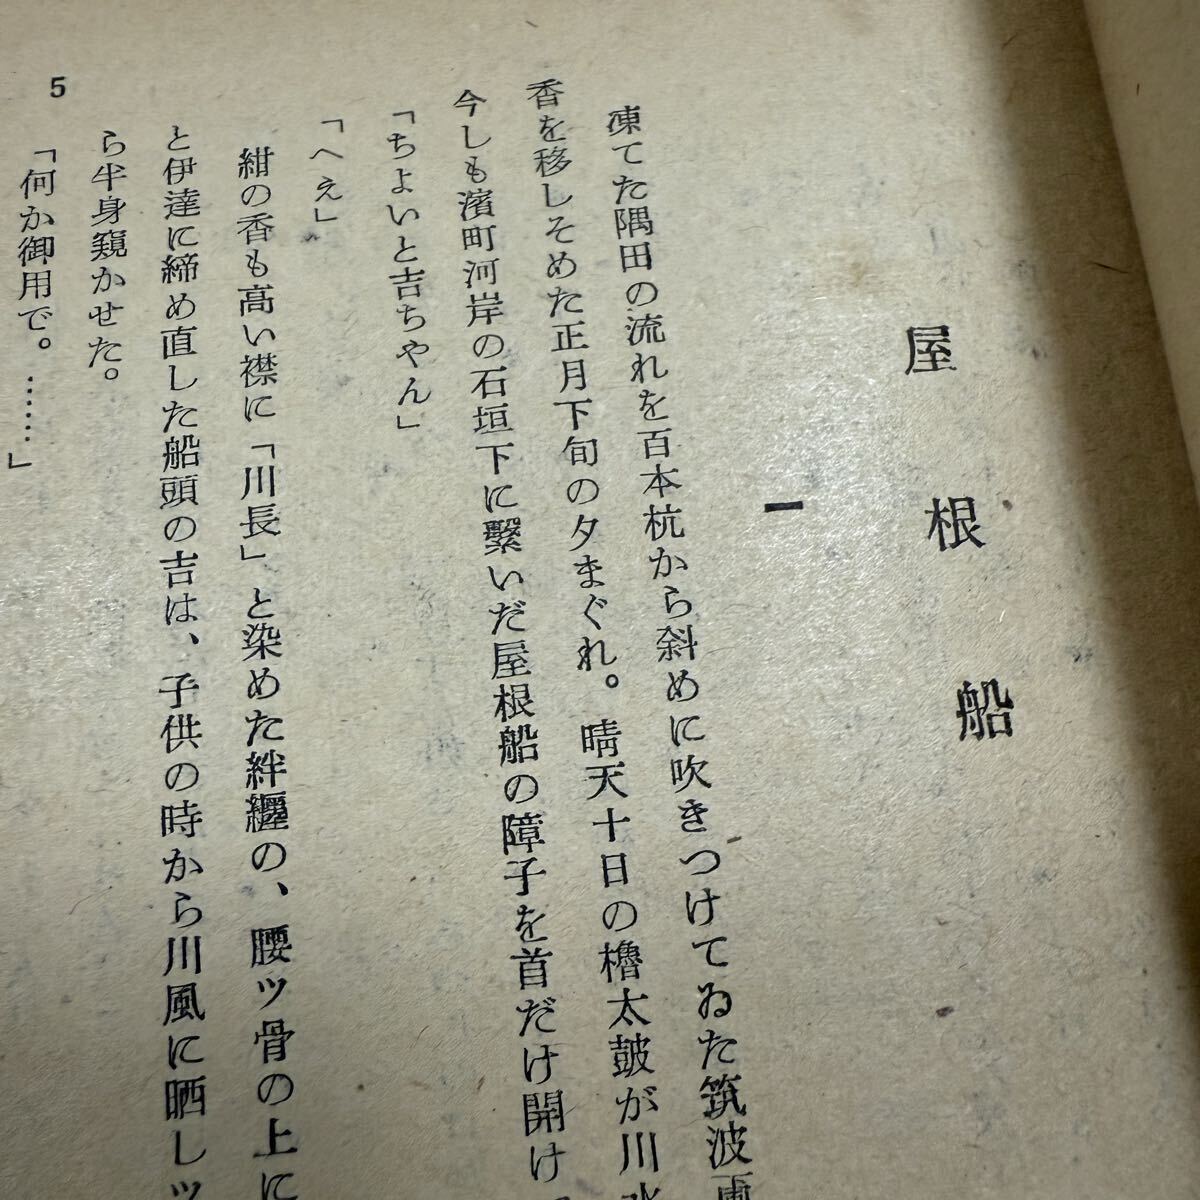 屋根船
一
凍てた隅田の流れを百本杭から斜めに吹きつけてゐた筑波
香を移しそめた正月下旬の夕まぐれ。晴天十日の櫓太鼓が川水
今しも濱町河岸の石垣下に繫いだ屋根船の障子を首だけ開け
「ちよいと吉ちやん」
「へえ」
紺の香も高い襟に「川長」と染めた絆纏の、腰ツ骨の上に
と伊達に締め直した船頭の吉は、子供の時から川風に晒しツ
ら半身窺かせた。
「何か御用で。……」
5